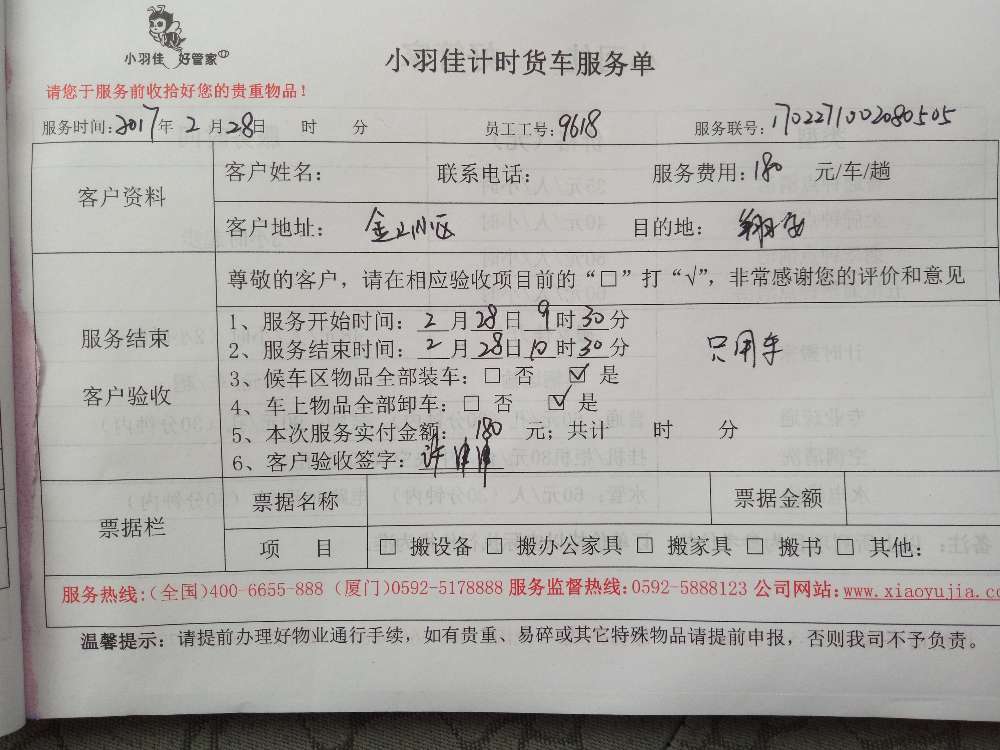 小羽佳 好管家
小羽佳计时货车服务单
请您于服务前收拾好您的贵重物品！
服务时间：2017年 2 月 28日 时 分 员工工号：9618 服务联号：1702271002080505
客户资料
客户姓名： 联系电话： 服务费用：180 元/车/趟
客户地址： 金山小区 目的地： 翔安
服务结束
客户验收
尊敬的客户，请在相应验收项目前的“□”打“√”，非常感谢您的评价和意见
1、服务开始时间：2 月 28 日 9 时 30 分
2、服务结束时间：2 月 28 日 10 时 30 分
只用车
3、候车区物品全部装车：□ 否 ☑ 是
4、车上物品全部卸车：□ 否 ☑ 是
5、本次服务实付金额：180 元；共计 时 分
6、客户验收签字：许
票据栏
票据名称 票据金额
项 目 □ 搬设备 □ 搬办公家具 □ 搬家具 □ 搬书 □ 其他：
服务热线：（全国）400-6655-888（厦门）0592-5178888 服务监督热线：0592-5888123 公司网站：www.xiaoyujia.co
温馨提示：请提前办理好物业通行手续，如有贵重、易碎或其它特殊物品请提前申报，否则我司不予负责。